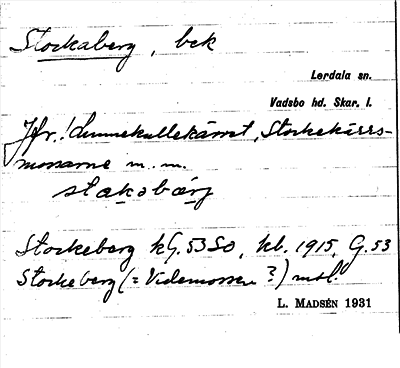 Stockaberg, bek
Lerdala sn.
Vadsbo hd. Skar. l.
Jfr. Lunnekullekärret, Stockekärrs-
mossarne m. m.
stakabärg
Stockeberg kG. 53 SO, kb. 1915, G. 53
Stockeberg (= Videmossen ?) mtl.
L. MADSÉN 1931